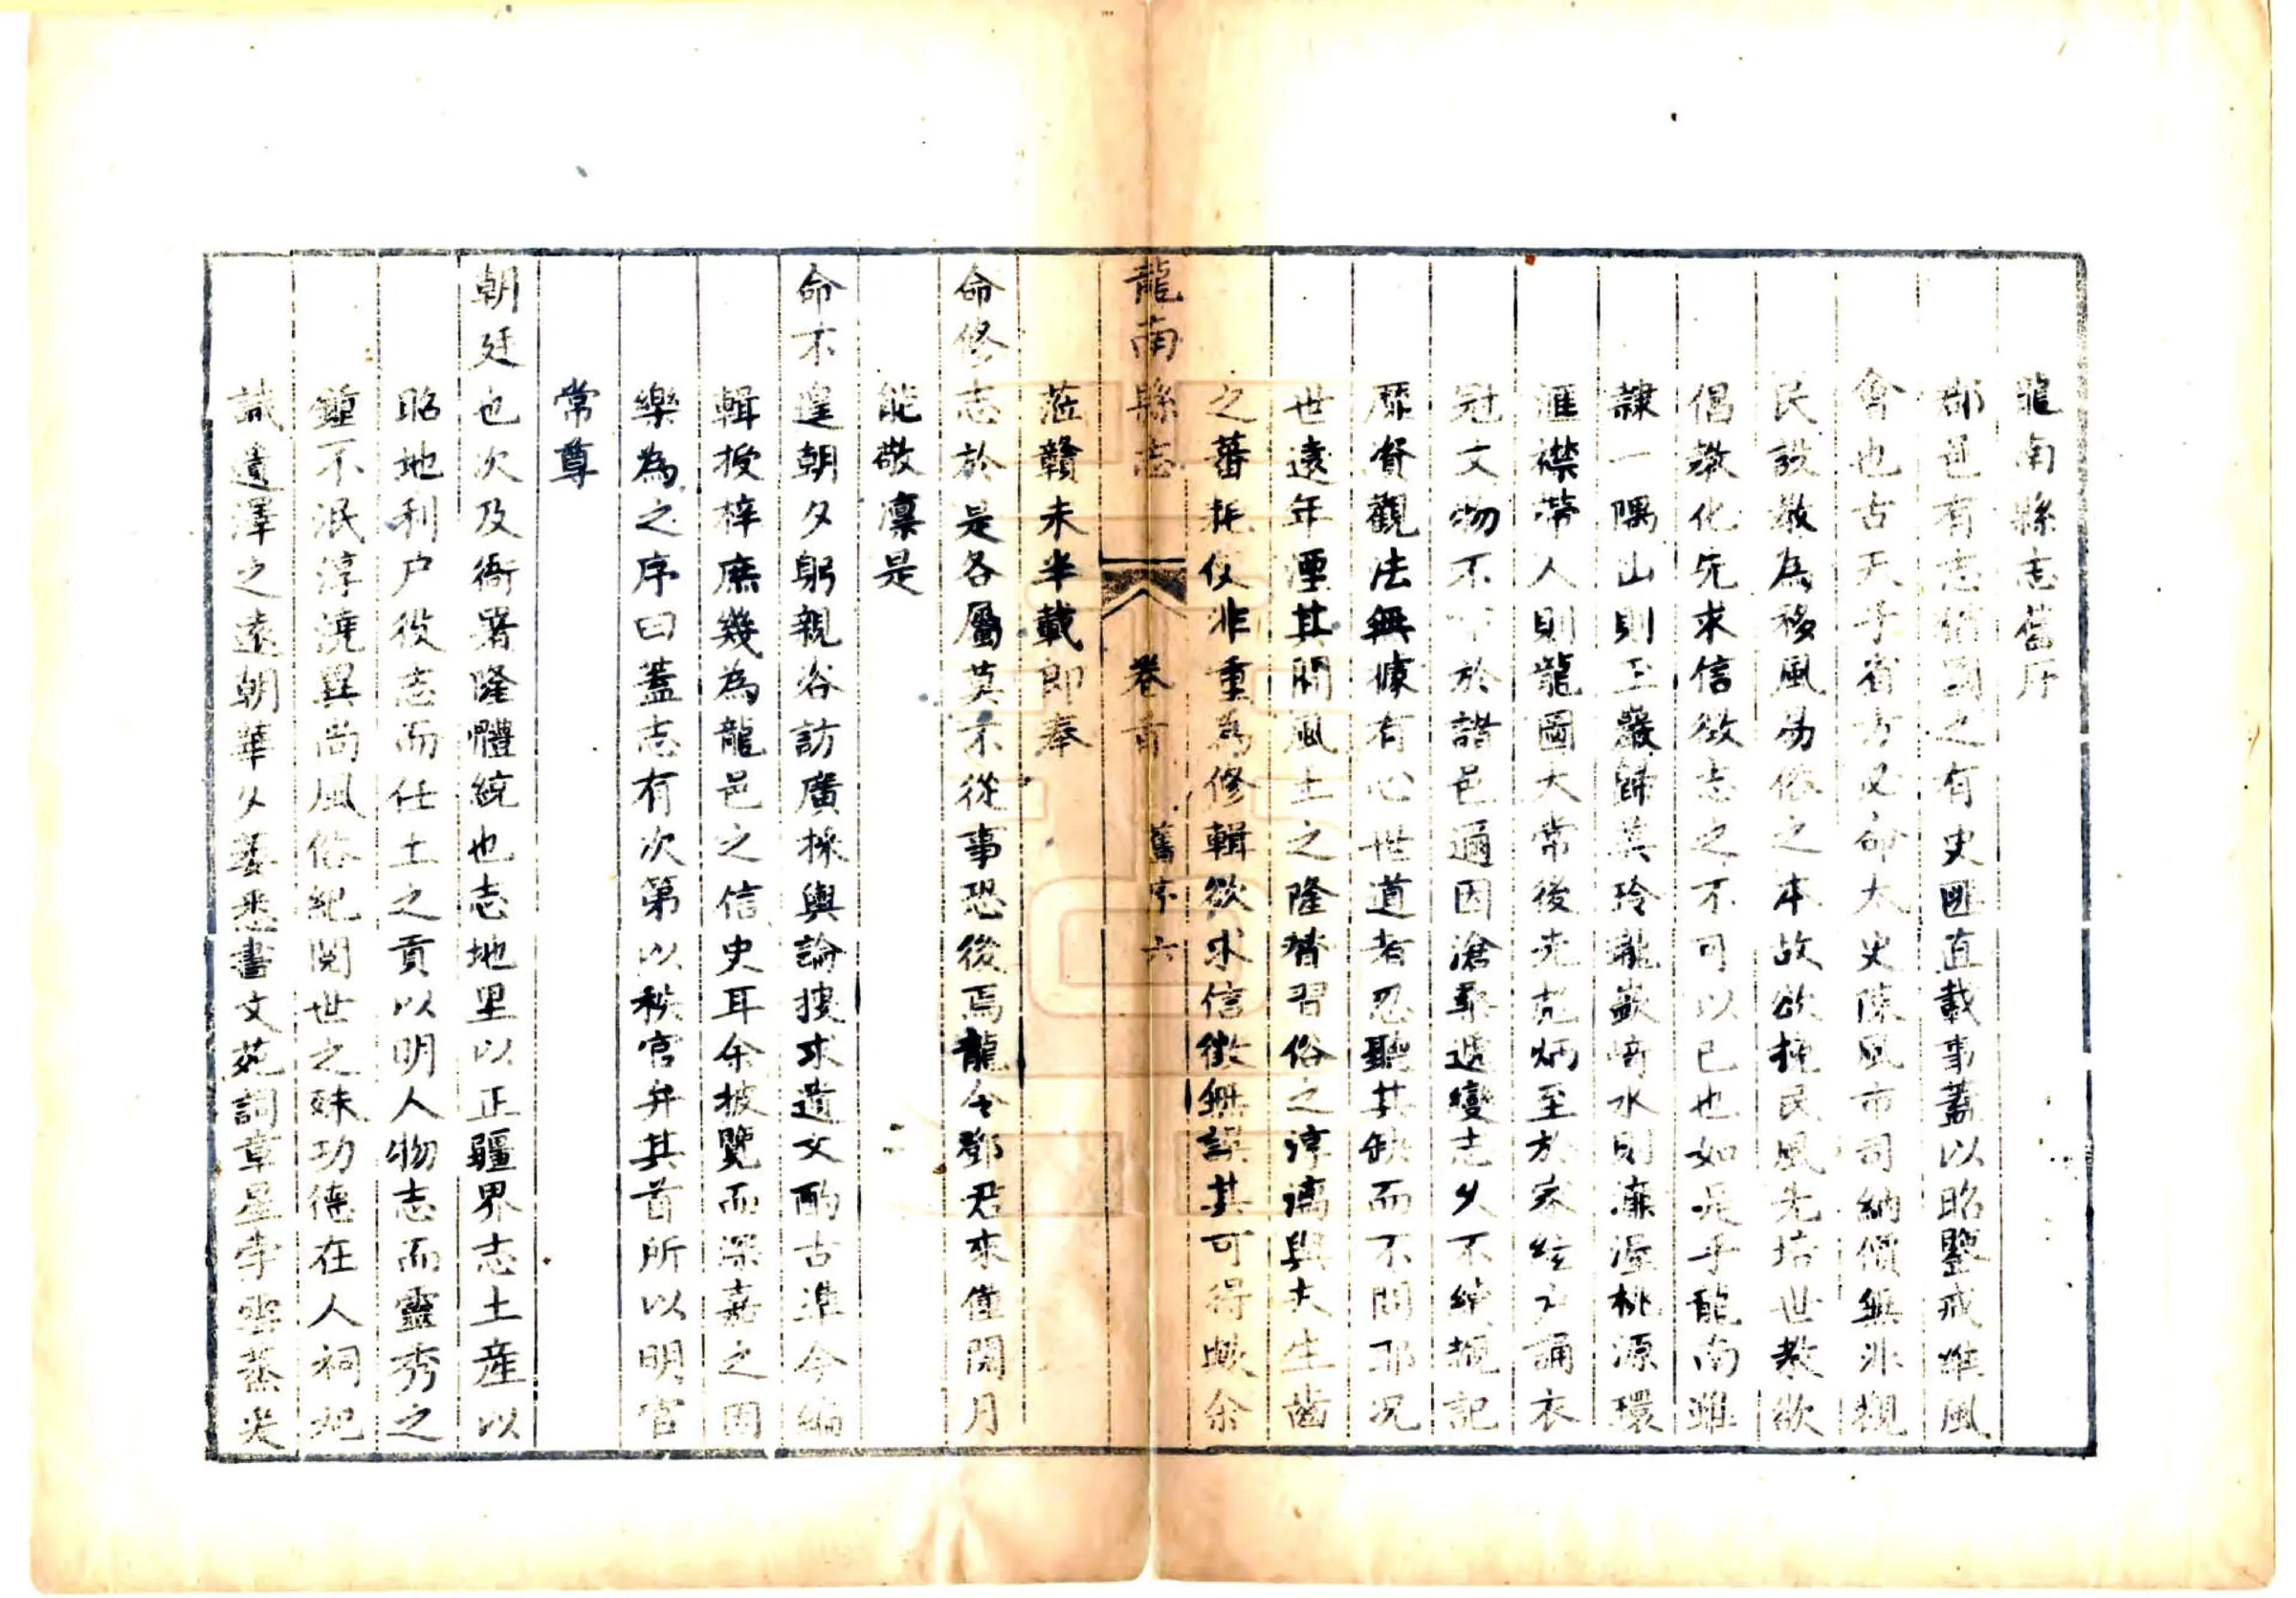 龍南縣志舊序
郡邑有志猶國之有史匪直載事蓋以昭鑒戒惟風
會也古天子省方必命太史陳風市司納價無非觀
民設教為移風易俗之本故欲挽民風先培世教欲
倡教化先求信徵志之不可以已也如是乎龍南雖
隷一隅山則玉巖歸美玲瓏嶔崎水則濂渥桃源環
滙襟帶人則龍圖大常後先尭炳至於家絃户誦衣
冠文物不下於諸邑邇因滄桑遞變志乆不綽規記
靡資觀法無據有心世道者忍聽其缺而不問耶况
世遠年湮其間風土之隆替習俗之淳漓與夫生齒
之蕃耗仅非重為修輯欲求信徵無誤其可得歟余
龍南縣志 卷首 舊序 六
蒞贛未半載即奉
命修志於是各屬莫不從事恐後焉龍令鄧君來僅閱月
能敬凜是
命不遑朝夕躬親谷訪廣採輿論搜求遺文酌古準今編
輯授梓庶幾為龍邑之信史耳余披覽而深嘉之因
樂為之序曰蓋志有次第以秩官弁其首所以明官
常尊
朝廷也次及衙署隆體統也志地里以正疆界志土産以
昭地利户役志而任土之貢以明人物志而靈秀之
鍾不泯淳澆異尚風俗紀閱世之殊功德在人祠祀
誌遺澤之遠朝華乆萎悉書文苑詞章星孛雲蒸灾